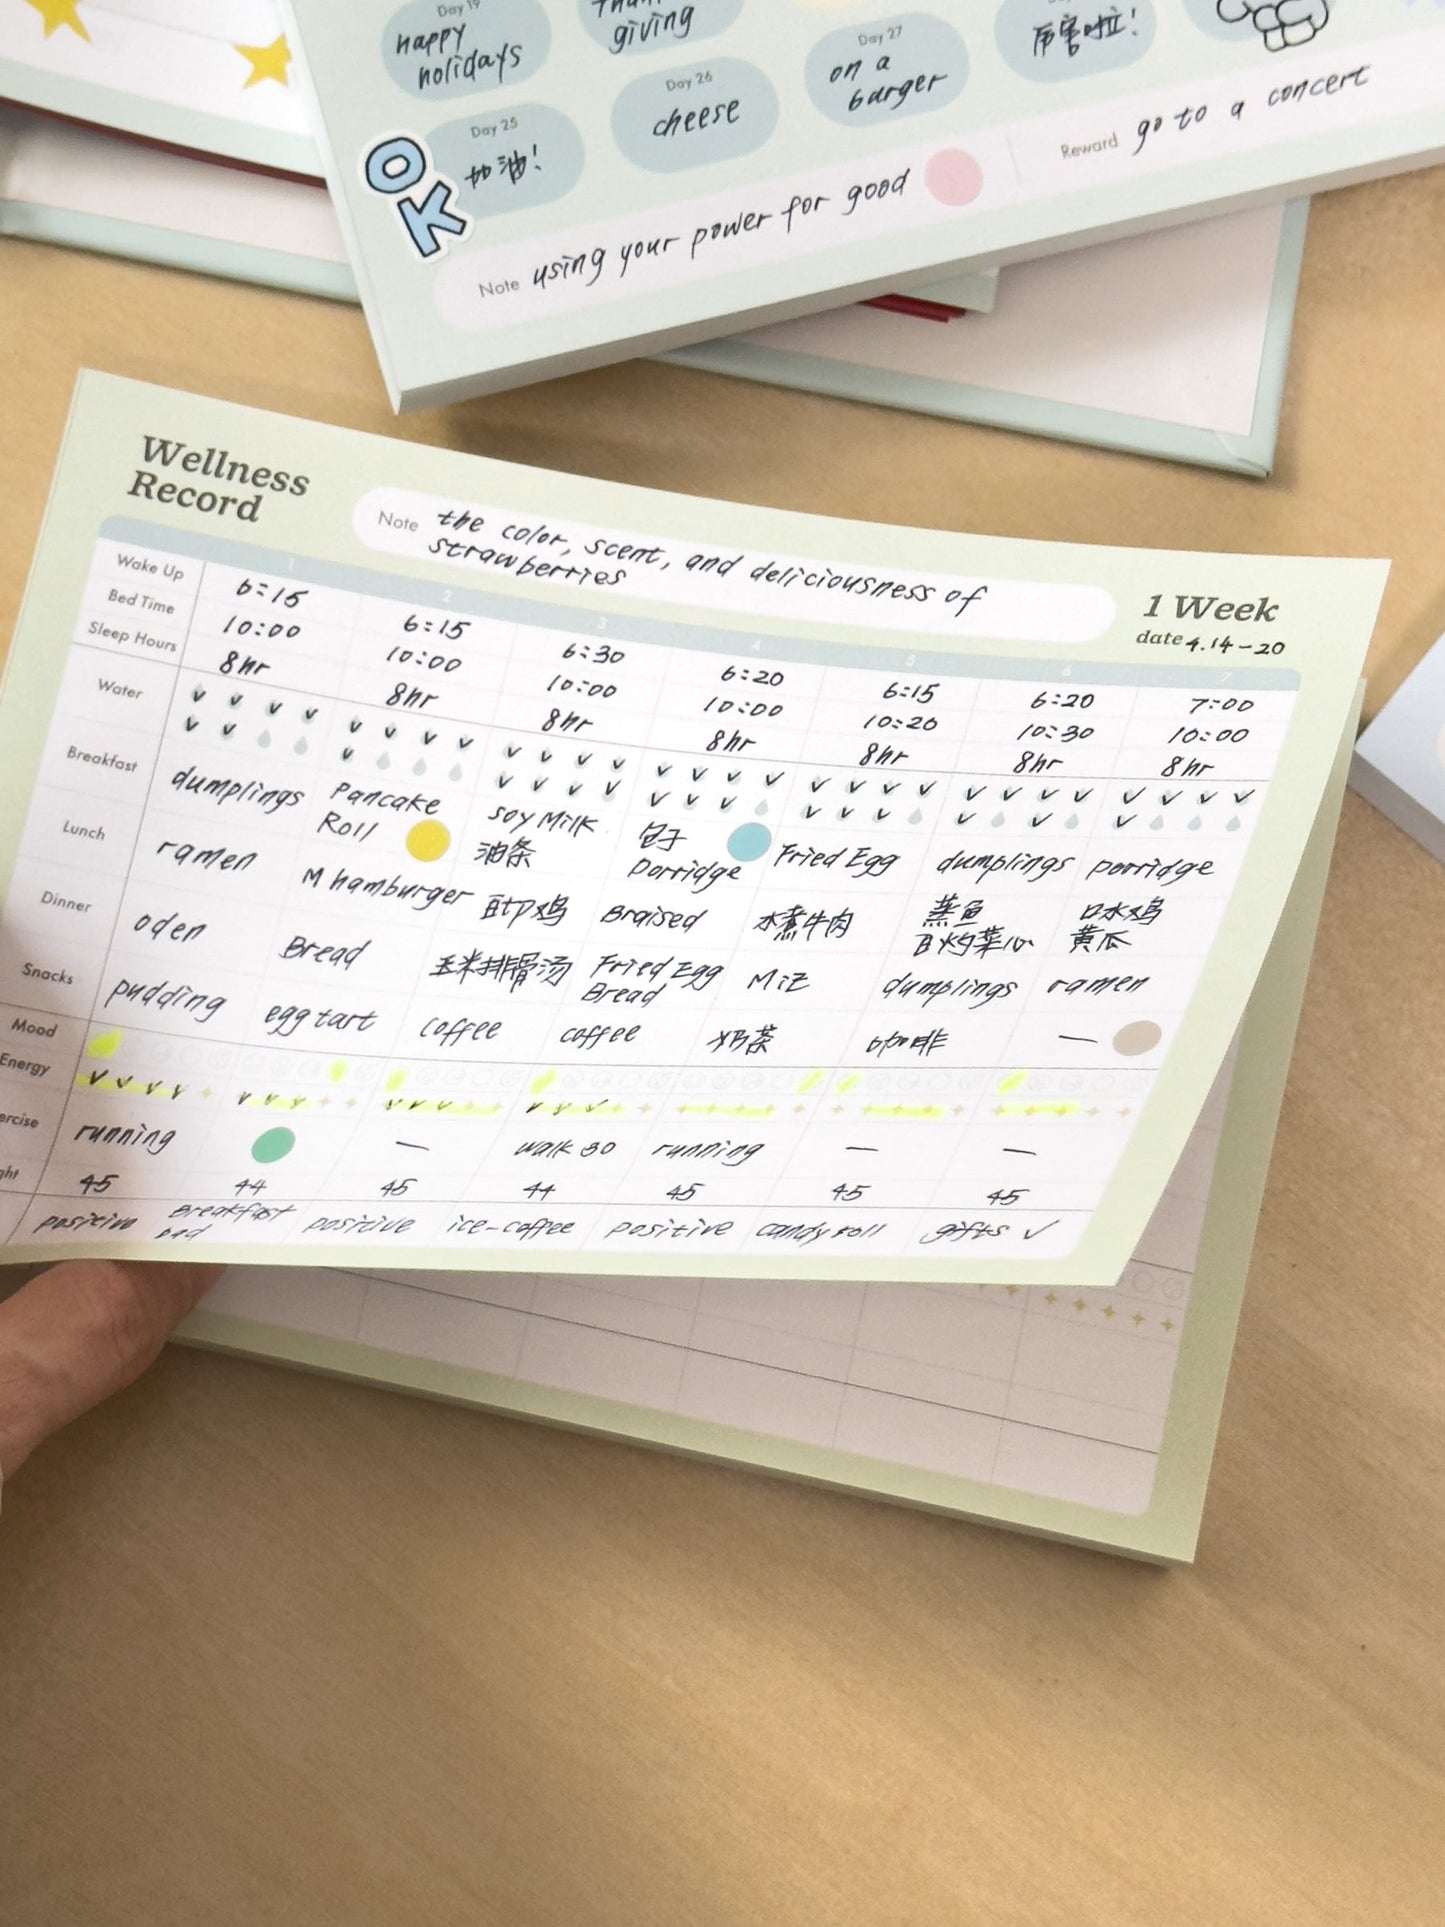 Day 19
happy
holidays
giving
Day 25
加油!
Day 26
cheese
Day 27
on a
burger
厉害啦!
OK
Note using your power for good
Reward go to a concert
Wellness
Record
Note the color, scent, and deliciousness of
strawberries
1 Week
date 4.14-20
1 2 3 4 5 6 7
Wake Up 6:15 6:15 6:30 6:20 6:15 6:20 7:00
Bed Time 10:00 10:00 10:00 10:00 10:20 10:30 10:00
Sleep Hours 8hr 8hr 8hr 8hr 8hr 8hr 8hr
Water
Breakfast dumplings Pancake Roll soy Milk 油条 包子 Porridge Fried Egg dumplings porridge
Lunch ramen M hamburger 豉油鸡 Braised 水煮牛肉 蒸鱼 白灼菜心 口水鸡 黄瓜
Dinner oden Bread 玉米排骨汤 Fried Egg Bread dumplings ramen
Snacks pudding egg tart coffee coffee 奶茶 咖啡 —
Mood
Energy
ercise running — walk 30 running — —
ght 45 44 45 44 45 45 45
positive Breakfast bad positive ice-coffee positive candy roll gifts ✓